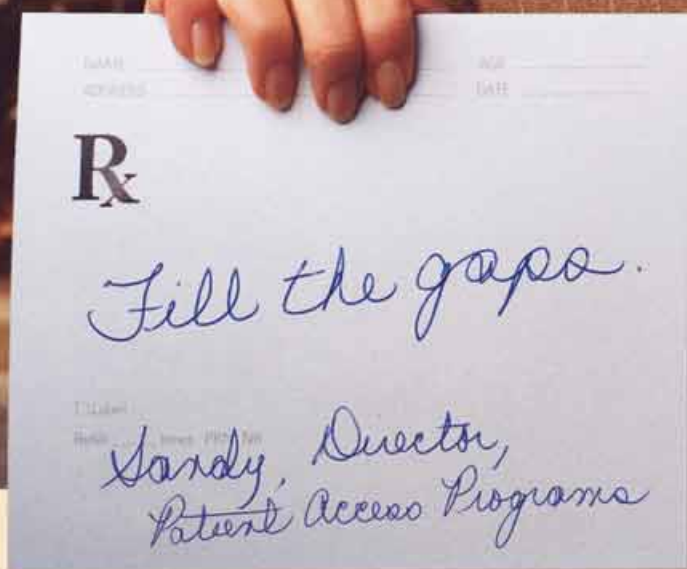 NAME AGE
ADDRESS DATE
Rx
Fill the gaps.
Label
Refill times PRN NR
Sandy, Director,
Patient Access Programs